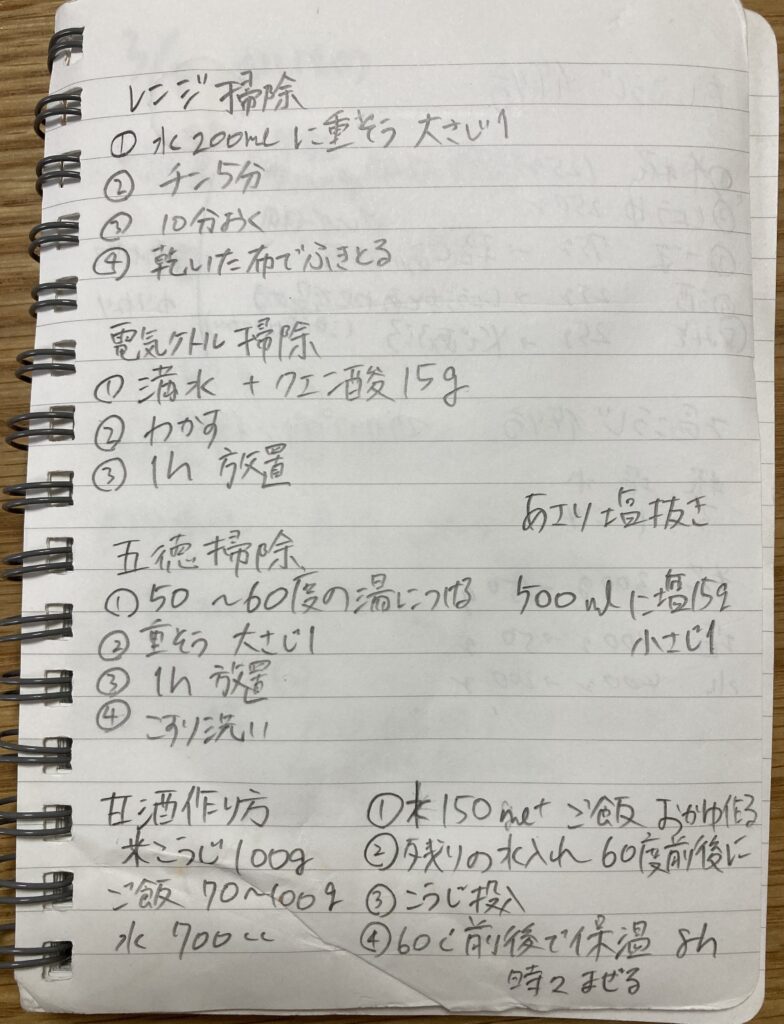 レンジ掃除
① 水200mlに重そう 大さじ1
② チン5分
③ 10分おく
④ 乾いた布でふきとる
電気ケトル掃除
① 満水 + クエン酸15g
② わかす
③ 1h 放置
五徳掃除
① 50～60度の湯につける
② 重そう 大さじ1
③ 1h 放置
④ こすり洗い
あさり塩抜き
500mlに塩15g
小さじ1
甘酒作り方
米こうじ100g
ご飯 70～100g
水 700cc
① 水150ml+ ご飯 おかゆ作る
② 残りの水入れ 60度前後に
③ こうじ投入
④ 60℃前後で保温 8h
時々まぜる